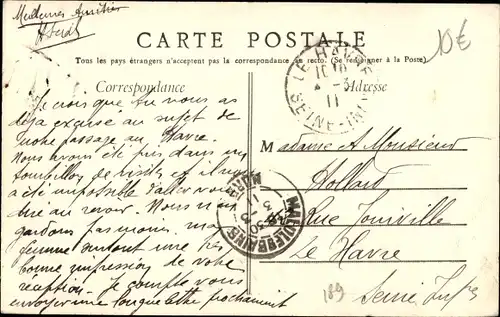 Meilleures Amitiés
10€
CARTE POSTALE
Tous les pays étrangers n'acceptent pas la correspondance au recto. (Se renseigner à la Poste)
Correspondance
Adresse
LE HAVRE
Je crois que tu nous as
déjà excusé au sujet de
notre passage au Havre.
Nous avons été pris dans un
tourbillon de visites et il nous
a été impossible d'aller vous
dire au revoir. Nous n'en
gardons pas moins, ma
femme surtout une très
bonne impression de votre
réception. Je compte vous
envoyer une longue lettre prochainement
Madame & Monsieur
Rue Joinville
Le Havre
Seine Infre
189